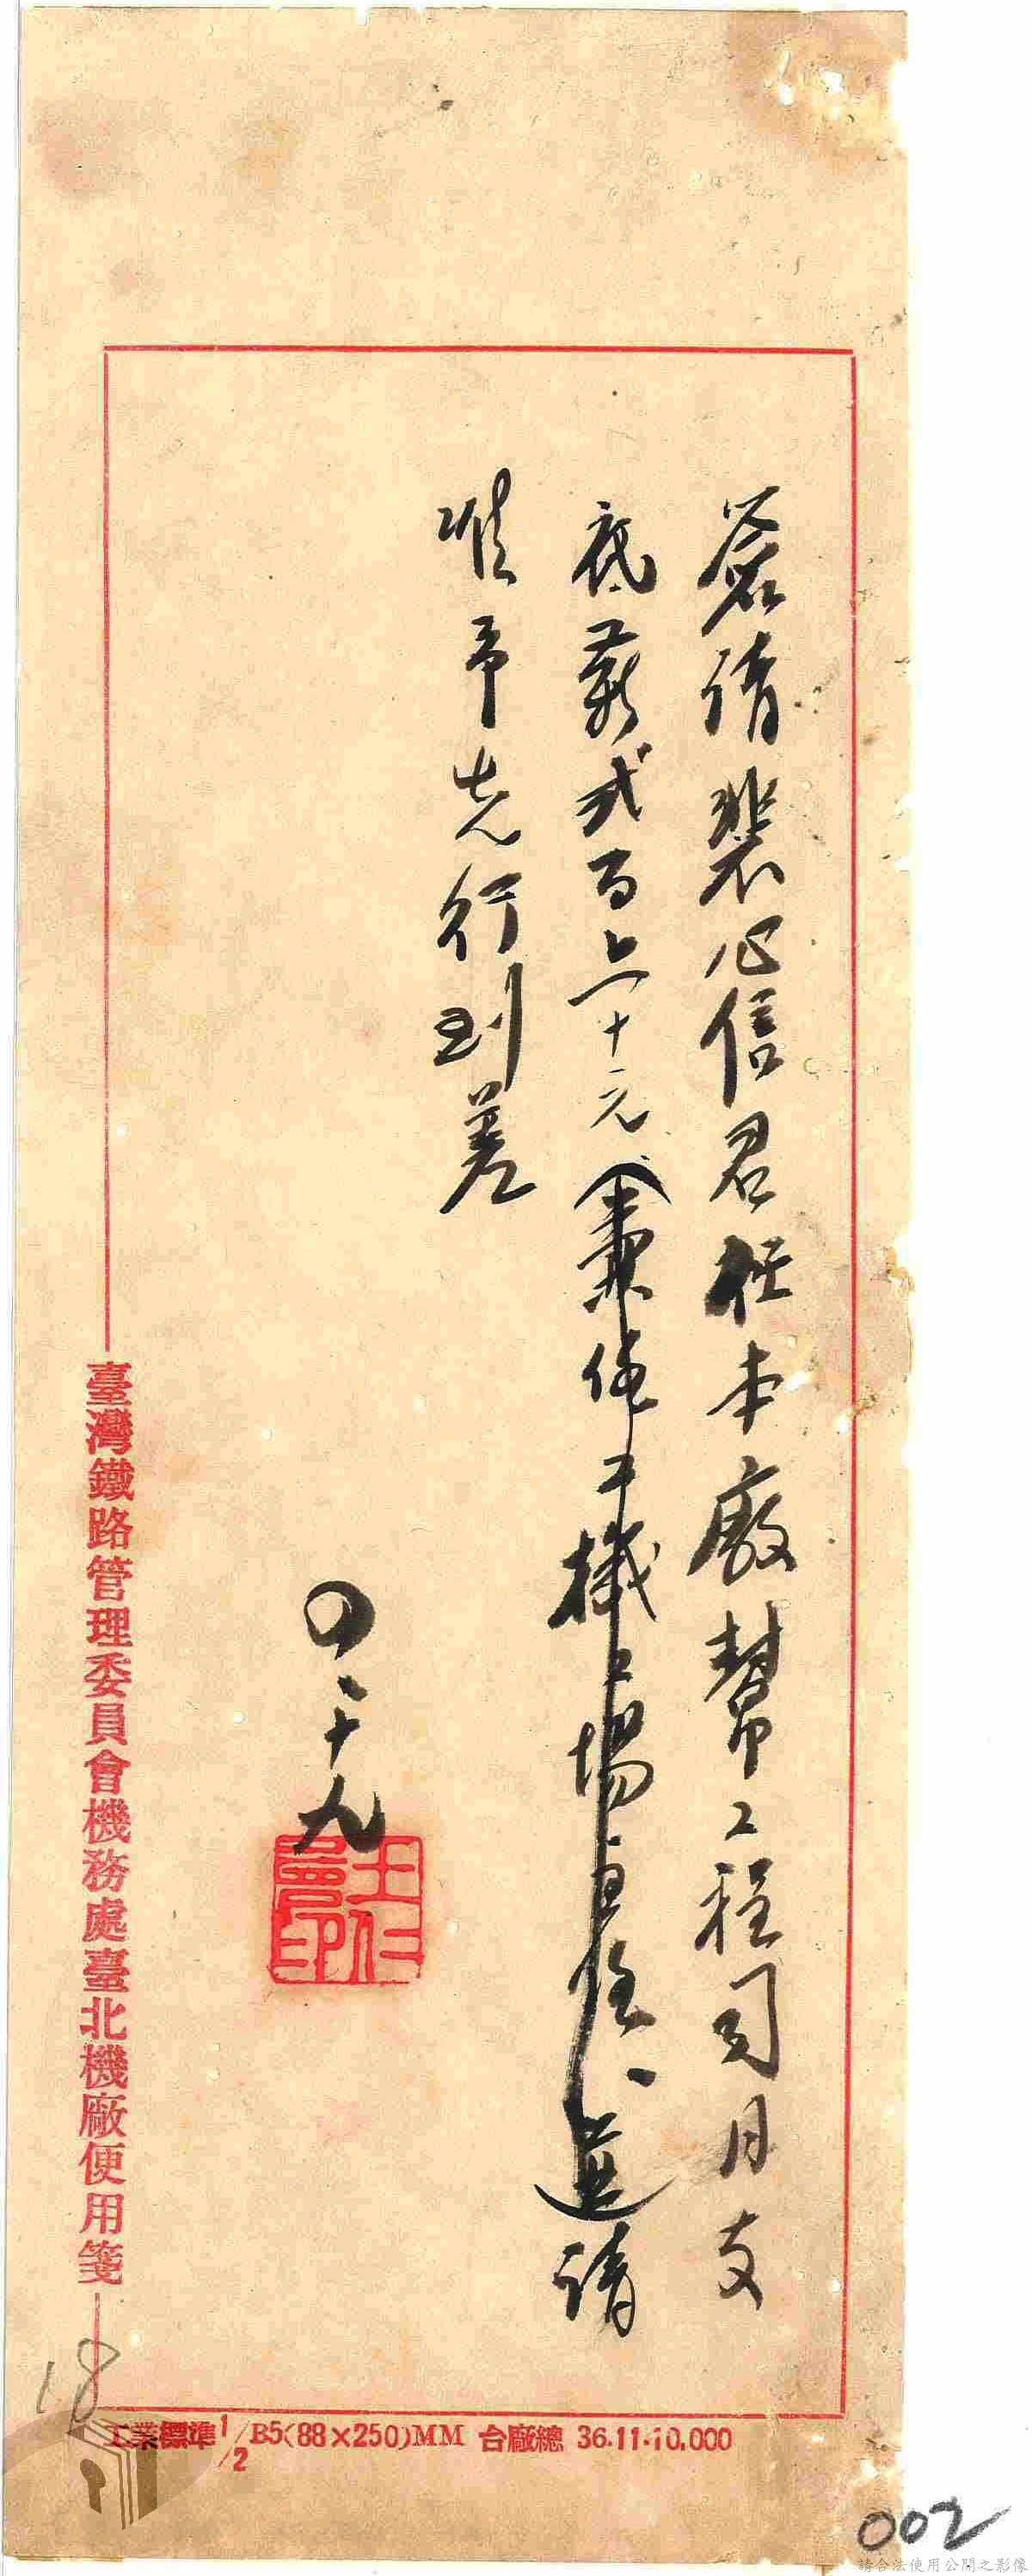 簽請裴心信君任本廠幫工程司月支
底薪弍百六十元(兼任工機工場主任)並請
准予先行到差
四、十九
臺灣鐵路管理委員會機務處臺北機廠便用箋
工業標準1/2B5(88×250)MM 台廠總 36.11.10,000
18
002
請合法使用公開之影像